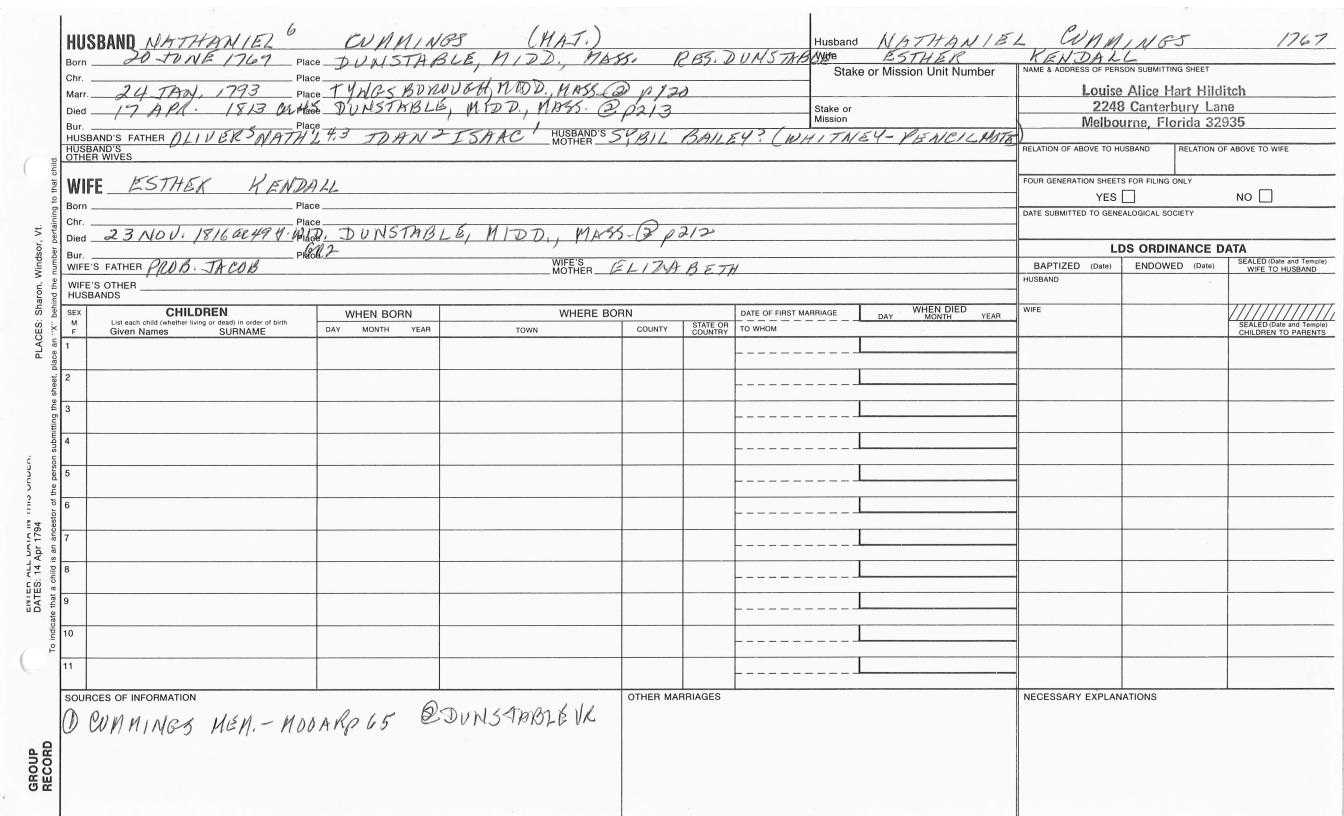 HUSBAND NATHANIEL 6 CUMMINGS (MAJ.)
Husband NATHANIEL CUMMINGS 1767
Born 20 JUNE 1767 Place DUNSTABLE, MIDD., MASS. RES. DUNSTABLE
Wife ESTHER KENDALL
Chr. Place
Stake or Mission Unit Number
NAME & ADDRESS OF PERSON SUBMITTING SHEET
Marr. 24 JAN. 1793 Place TYNGSBOROUGH, MIDD., MASS. ② p120
Louise Alice Hart Hilditch
2248 Canterbury Lane
Melbourne, Florida 32935
Died 17 APR. 1813 Place DUNSTABLE, MIDD., MASS. ② p213
Stake or
Mission
Bur. Place
HUSBAND'S FATHER OLIVER 5 NATH'L 4.3 JOHN 2 ISAAC 1 HUSBAND'S MOTHER SYBIL BAILEY? (WHITNEY-PENCIL NOTE)
HUSBAND'S
OTHER WIVES
RELATION OF ABOVE TO HUSBAND RELATION OF ABOVE TO WIFE
WIFE ESTHER KENDALL
FOUR GENERATION SHEETS FOR FILING ONLY
YES NO
Born Place
DATE SUBMITTED TO GENEALOGICAL SOCIETY
Chr. Place
Died 23 NOV. 1816 49 Y. WID. Place DUNSTABLE, MIDD., MASS. ② p212
Bur. Place GR2
LDS ORDINANCE DATA
WIFE'S FATHER PROB. JACOB WIFE'S MOTHER ELIZABETH
BAPTIZED (Date) ENDOWED (Date) SEALED (Date and Temple) WIFE TO HUSBAND
WIFE'S OTHER
HUSBANDS
HUSBAND
SEX M F
CHILDREN
List each child (whether living or dead) in order of birth
Given Names SURNAME
WHEN BORN
DAY MONTH YEAR
WHERE BORN
TOWN COUNTY STATE OR COUNTRY
DATE OF FIRST MARRIAGE
TO WHOM
WHEN DIED
DAY MONTH YEAR
WIFE
SEALED (Date and Temple)
CHILDREN TO PARENTS
1
2
3
4
5
6
7
8
9
10
11
SOURCES OF INFORMATION
① CUMMINGS MEM.- p 65 ② DUNSTABLE VR
OTHER MARRIAGES
NECESSARY EXPLANATIONS
PLACES: Sharon, Windsor, Vt.
ENTER ALL DATA IN THIS ORDER:
DATES: 14 Apr 1794
To indicate that a child is an ancestor of the person submitting the sheet, place an "X" behind the number pertaining to that child.
GROUP
RECORD